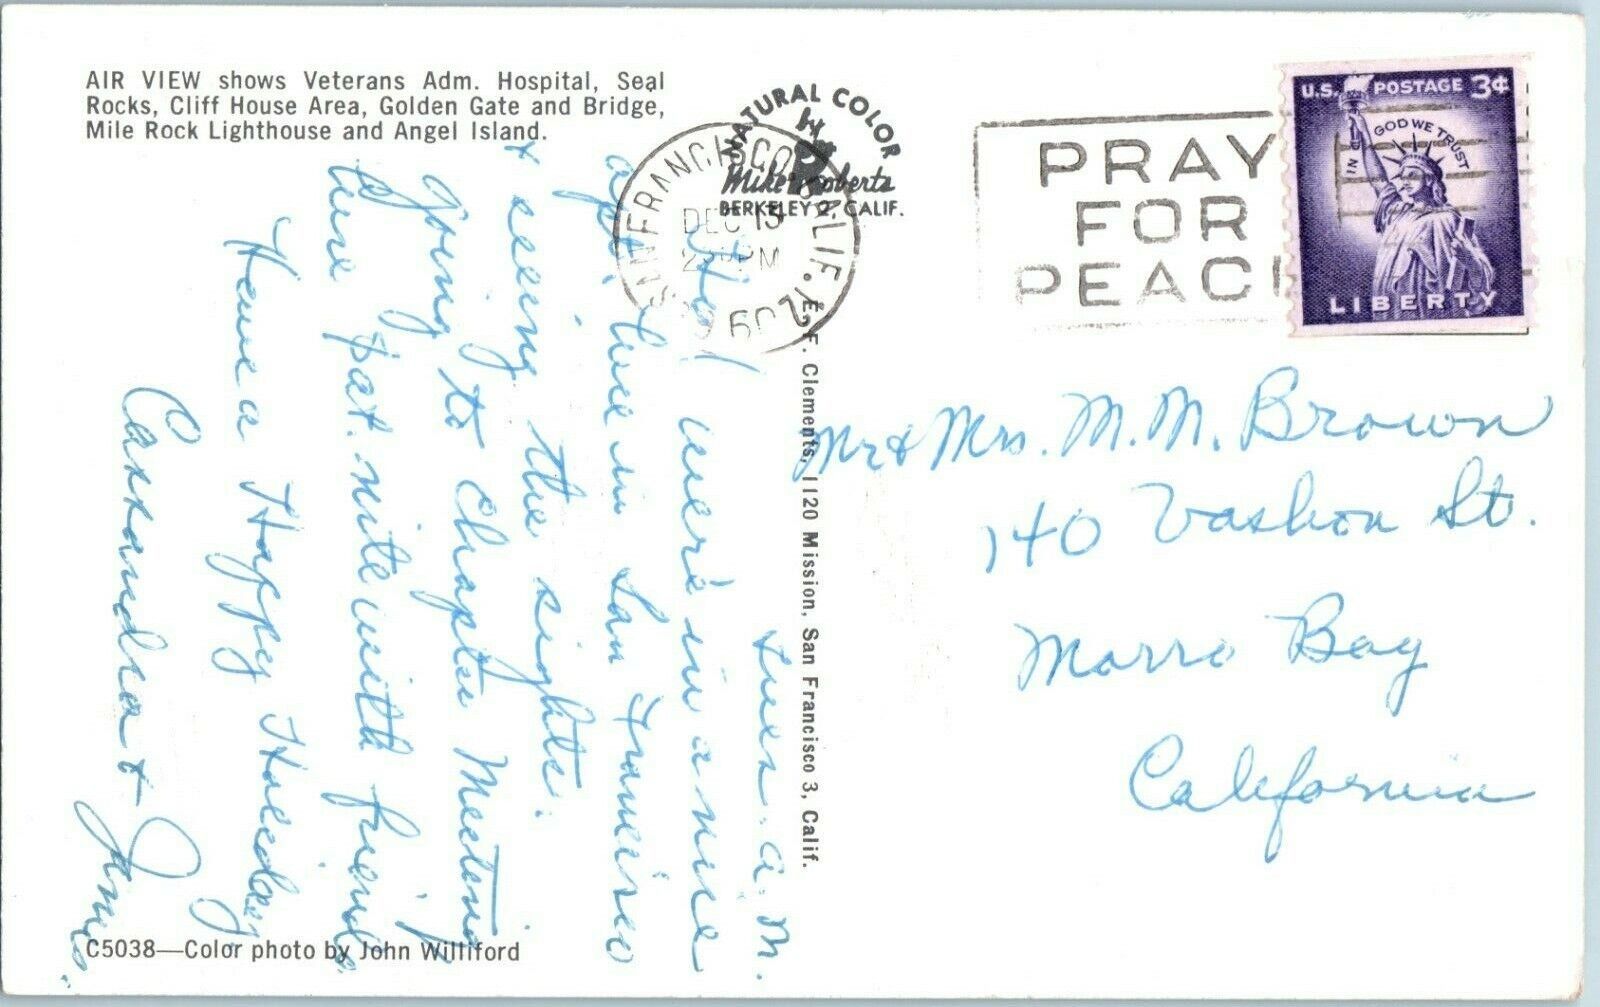 AIR VIEW shows Veterans Adm. Hospital, Seal
Rocks, Cliff House Area, Golden Gate and Bridge,
Mile Rock Lighthouse and Angel Island.
NATURAL COLOR
Mike Roberts
BERKELEY 2, CALIF.
SAN FRANCISCO, CALIF.
DEC 13
PM
PRAY
FOR
PEACE
U.S. POSTAGE 3¢
IN GOD WE TRUST
LIBERTY
Tues. a.m.
Ho! were in a nice
apt. here in San Francisco
+ seeing the sights.
Going to Chapter Meeting
here Sat. nite with friends.
Have a Happy Holiday,
Cassandra + James.
Mr & Mrs. M. M. Brown
140 Vashon St.
Morro Bay
California
E. F. Clements, 1120 Mission, San Francisco 3, Calif.
C5038—Color photo by John Williford